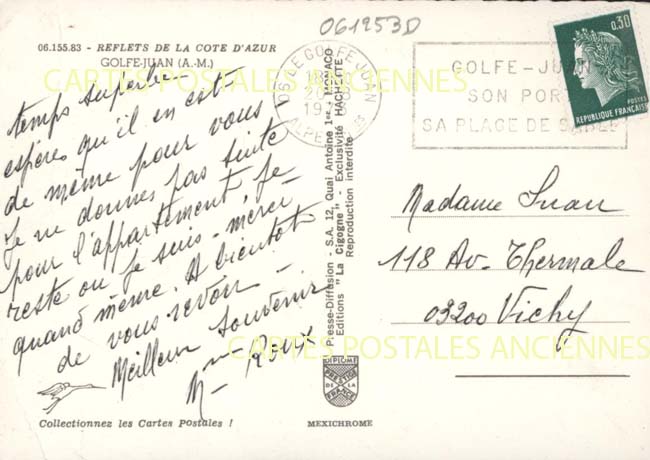 061253D
06.155.83 - REFLETS DE LA COTE D'AZUR
GOLFE-JUAN (A.-M.)
CARTES POSTALES ANCIENNES
temps superbe
espères qu'il en est
de même pour vous
Je ne donnes pas suite
pour l'appartement, je
reste ou je suis - merci
quand même. A bientôt
de vous revoir -
Meilleur souvenir
Collectionnez les Cartes Postales !
Presse-Diffusion - S.A. 12, Quai Antoine 1er - MONACO
Editions "La Cigogne" - Exclusivité HACHETTE
Reproduction interdite
DIPLOME
PRESTIGE
DE LA
FRANCE
MEXICHROME
06 LE GOLFE JUAN
ALPES
GOLFE-JUAN
SON PORT
SA PLAGE DE SABLE
0,30
POSTES
REPUBLIQUE FRANÇAISE
Madame Juan
118 Av. Thermale
03200 Vichy
CARTES POSTALES ANCIENNES